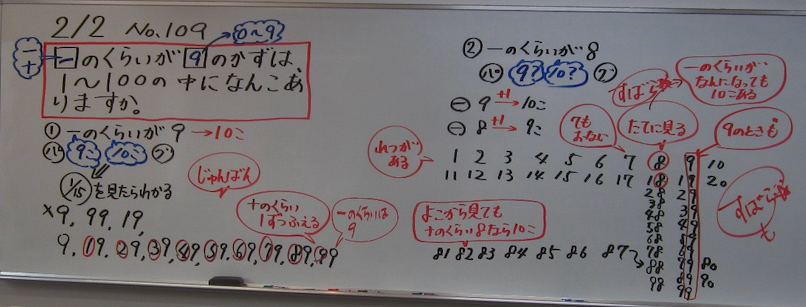 2/2 No.109
0〜9
一
十
一のくらいが 9 のかずは、
1〜100の中になんこあ
りますか。
① 一のくらいが 9 →10こ
パ 9こ 10こ グ
1/15 を見たらわかる
じゅんばん
×9, 99, 19,
十のくらい
1ずつふえる
一のくらいは
9
9, 19, 29, 39, 49, 59, 69, 79, 89, 99
② 一のくらいが 8
パ 9? 10? グ
一のくらいが
なんになっても
10こある
⊖ 9 +1→ 10こ
⊖ 8 +1→ 9こ
7も
おなじ
たてに見る
9のときも
れつが
ある
1 2 3 4 5 6 7 8 9 10
11 12 13 14 15 16 17 18 19 20
28 29
38 39
48 49
58 59
68 69
78 79
88 89 80
98 99 90
よこから見ても
十のくらい8なら10こ
81 82 83 84 85 86 87